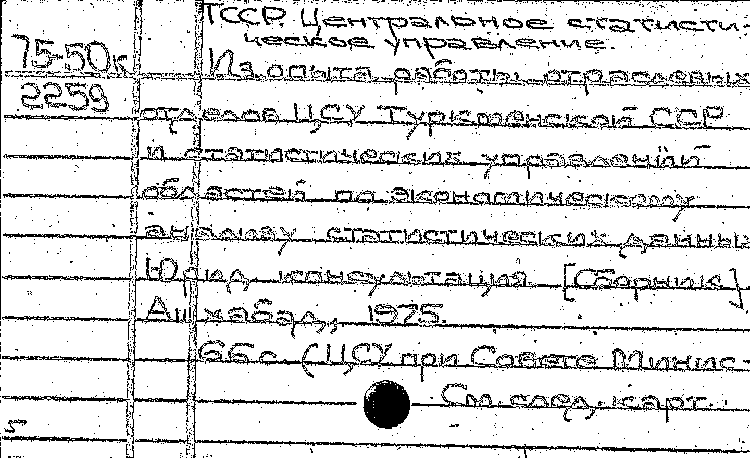 ТССР. Центральное статисти-
ческое управление.
75-50к Из опыта работы отраслевых
2259 отделов ЦСУ Туркменской ССР
и статистических управлений
областей по экономическому
анализу статистических данных
Юрид. консультация. [Сборник]
Ашхабад, 1975.
66 с. (ЦСУ при Совете Минис-
См. след. карт.
5